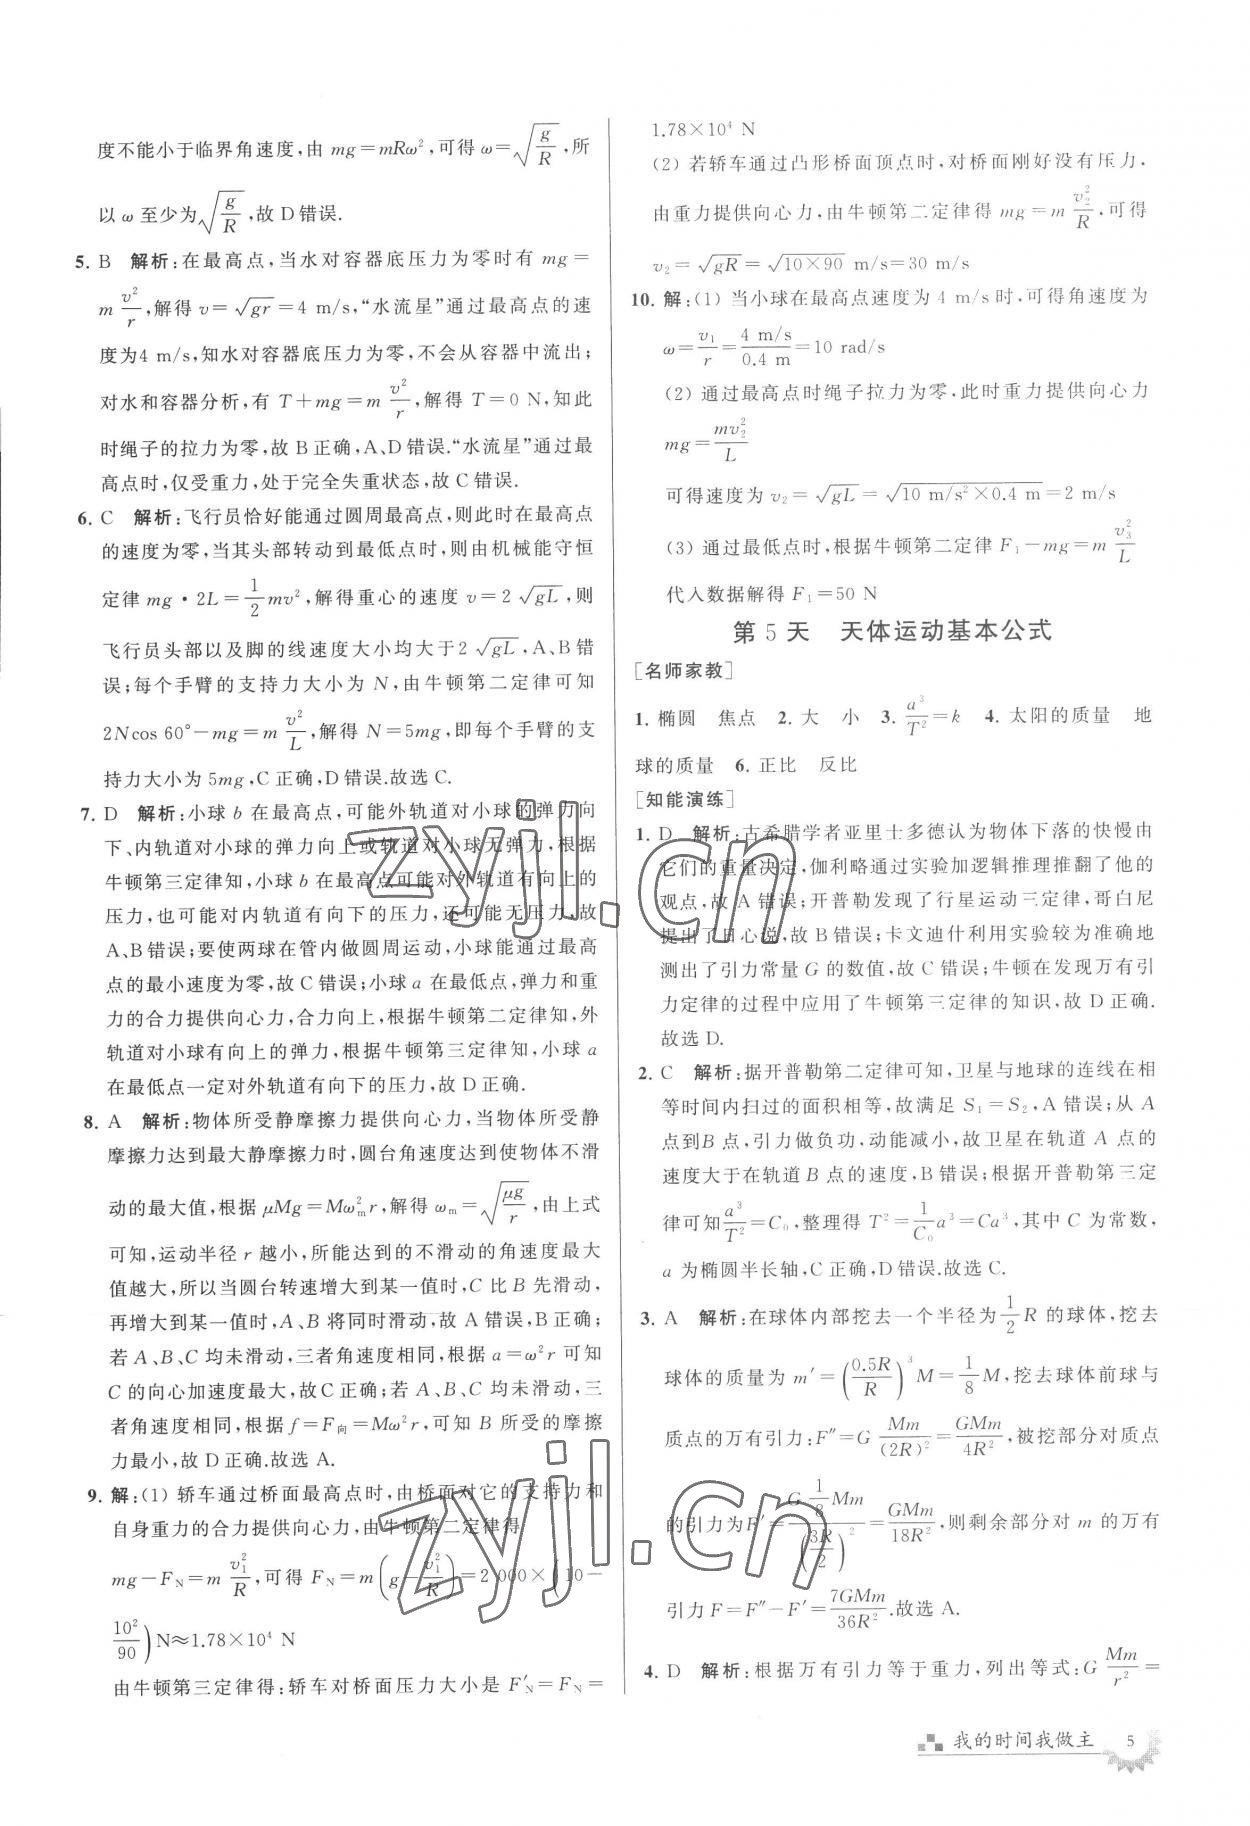 度不能小于临界角速度,由 mg=mRω²,可得 ω=√(g/R),所
以 ω 至少为√(g/R),故 D 错误.
5. B 解析:在最高点,当水对容器底压力为零时有 mg=
m v²/r,解得 v=√gr=4 m/s,“水流星”通过最高点的速
度为4 m/s,知水对容器底压力为零,不会从容器中流出;
对水和容器分析,有 T+mg=m v²/r,解得 T=0 N,知此
时绳子的拉力为零,故 B 正确,A、D 错误.“水流星”通过最
高点时,仅受重力,处于完全失重状态,故 C 错误.
6. C 解析:飞行员恰好能通过圆周最高点,则此时在最高点
的速度为零,当其头部转动到最低点时,则由机械能守恒
定律 mg·2L=1/2 mv²,解得重心的速度 v=2√gL,则
飞行员头部以及脚的线速度大小均大于2√gL,A、B 错
误;每个手臂的支持力大小为 N,由牛顿第二定律可知
2Ncos 60°-mg=m v²/L,解得 N=5mg,即每个手臂的支
持力大小为 5mg,C 正确,D 错误.故选 C.
7. D 解析:小球 b 在最高点,可能外轨道对小球的弹力向
下、内轨道对小球的弹力向上或轨道对小球无弹力,根据
牛顿第三定律知,小球 b 在最高点可能对外轨道有向上的
压力,也可能对内轨道有向下的压力,还可能无压力,故
A、B 错误;要使两球在管内做圆周运动,小球能通过最高
点的最小速度为零,故 C 错误;小球 a 在最低点,弹力和重
力的合力提供向心力,合力向上,根据牛顿第二定律知,外
轨道对小球有向上的弹力,根据牛顿第三定律知,小球 a
在最低点一定对外轨道有向下的压力,故 D 正确.
8. A 解析:物体所受静摩擦力提供向心力,当物体所受静
摩擦力达到最大静摩擦力时,圆台角速度达到使物体不滑
动的最大值,根据 μMg=Mω²ₘr,解得 ωₘ=√(μg/r),由上式
可知,运动半径 r 越小,所能达到的不滑动的角速度最大
值越大,所以当圆台转速增大到某一值时,C 比 B 先滑动,
再增大到某一值时,A、B 将同时滑动,故 A 错误,B 正确;
若 A、B、C 均未滑动,三者角速度相同,根据 a=ω²r 可知
C 的向心加速度最大,故C 正确;若 A、B、C 均未滑动,三
者角速度相同,根据 f=F向=Mω²r,可知 B 所受的摩擦
力最小,故 D 正确.故选 A.
9. 解:(1) 轿车通过桥面最高点时,由桥面对它的支持力和
自身重力的合力提供向心力,由牛顿第二定律得
mg-F_N=m v₁²/R,可得 F_N=m(g-v₁²/R)=2 000×(10-
10²/90)N≈1.78×10⁴ N
由牛顿第三定律得:轿车对桥面压力大小是 F′_N=F_N=
1.78×10⁴ N
(2) 若轿车通过凸形桥面顶点时,对桥面刚好没有压力,
由重力提供向心力,由牛顿第二定律得 mg=m v₂²/R,可得
v₂=√gR=√(10×90) m/s=30 m/s
10. 解:(1) 当小球在最高点速度为 4 m/s时,可得角速度为
ω=v₁/r=(4 m/s)/(0.4 m)=10 rad/s
(2) 通过最高点时绳子拉力为零,此时重力提供向心力
mg=mv₂²/L
可得速度为 v₂=√gL=√(10 m/s²×0.4 m)=2 m/s
(3) 通过最低点时,根据牛顿第二定律 F₁-mg=m v₃²/L
代入数据解得 F₁=50 N
第 5 天 天体运动基本公式
[名师家教]
1. 椭圆 焦点 2. 大 小 3. a³/T²=k 4. 太阳的质量 地
球的质量 6. 正比 反比
[知能演练]
1. D 解析:古希腊学者亚里士多德认为物体下落的快慢由
它们的重量决定,伽利略通过实验加逻辑推理推翻了他的
观点,故 A 错误;开普勒发现了行星运动三定律,哥白尼
提出了日心说,故 B 错误;卡文迪什利用实验较为准确地
测出了引力常量 G 的数值,故 C 错误;牛顿在发现万有引
力定律的过程中应用了牛顿第三定律的知识,故 D 正确.
故选 D.
2. C 解析:据开普勒第二定律可知,卫星与地球的连线在相
等时间内扫过的面积相等,故满足 S₁=S₂,A 错误;从 A
点到B 点,引力做负功,动能减小,故卫星在轨道 A 点的
速度大于在轨道 B 点的速度,B 错误;根据开普勒第三定
律可知a³/T²=C₀,整理得 T²=1/C₀ a³=Ca³,其中 C 为常数,
a 为椭圆半长轴,C 正确,D 错误.故选 C.
3. A 解析:在球体内部挖去一个半径为1/2 R 的球体,挖去
球体的质量为 m′=(0.5R/R)³M=1/8 M,挖去球体前球与
质点的万有引力:F″=G Mm/(2R)²=GMm/4R²,被挖部分对质点
的引力为F′=(G 1/8 Mm)/(3R/2)²=GMm/18R²,则剩余部分对 m 的万有
引力 F=F″-F′=7GMm/36R².故选 A.
4. D 解析:根据万有引力等于重力,列出等式:G Mm/r²=
我的时间我做主 5
zyjl.cn
zyjl.cn